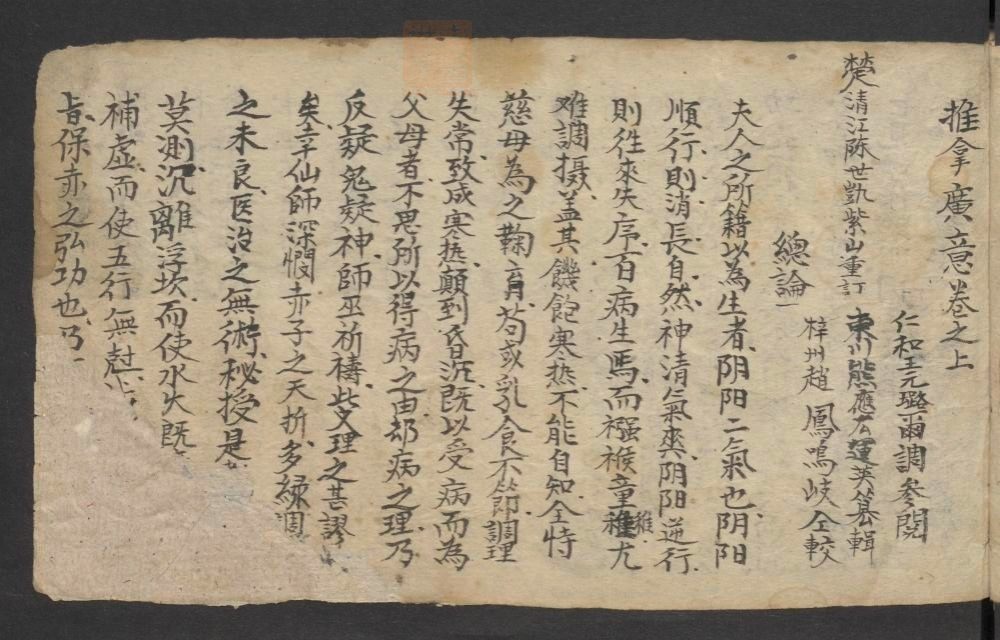 推拿廣意卷之上
仁和王元璐爾調參閱
楚清江陈世凯紫山重訂 東川熊應雄運英纂輯
梓州趙鳳鳴岐仝較
總論
夫人之所籍以為生者阴阳二氣也阴阳
順行則消長自然神清氣爽阴阳逆行
則徃來失序百病生焉而襁褓童稚尤
难調摄盖其饑飽寒热不能自知全恃
慈母為之鞠育苟或乳食不節調理
失常致成寒热顛到昏沉既以受病而為
父母者不思所以得病之由却病之理乃
反疑鬼疑神師巫祈禱此文理之甚謬
矣幸仙師深憫赤子之夭折多緣調
之未良医治之無術秘授是
莫測沉離浮坎而使水火既
補虛而使五行無尅
旨保赤之弘功也乃一